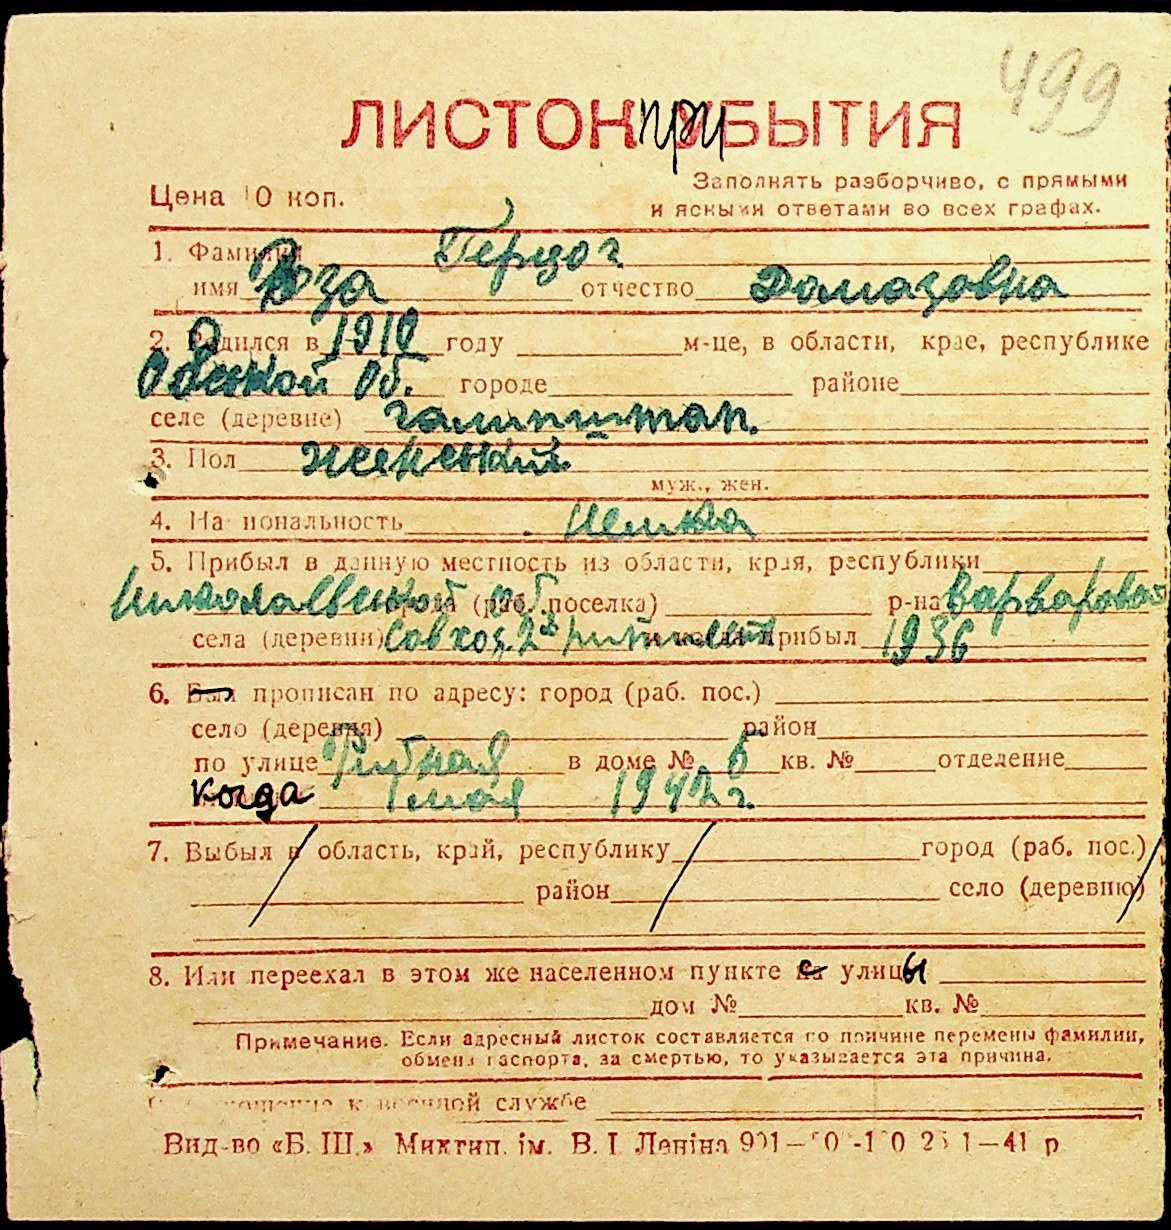 499
ЛИСТОК ПРИБЫТИЯ
Цена 10 коп.
Заполнять разборчиво, с прямыми
и ясными ответами во всех графах.
1. Фамилия Герцог
имя Роза отчество Домазовна
2. Родился в 1910 году м-це, в области, крае, республике
Одеской Об. городе районе
селе (деревне)
3. Пол женский
муж., жен.
4. Национальность Немка
5. Прибыл в данную местность из области, края, республики
Николаевской об. города (раб. поселка) р-на Варваровой
села (деревни) Совхоз и когда прибыл 1936
6. прописан по адресу: город (раб. пос.)
село (деревня) район
по улице Рибная в доме № 6 кв. № отделение
когда 1 мая 1942 г.
7. Выбыл в область, край, республику город (раб. пос.)
район село (деревню)
8. Или переехал в этом же населенном пункте с улицы
дом № кв. №
Примечание. Если адресный листок составляется по причине перемены фамилии,
обмена паспорта, за смертью, то указывается эта причина.
к военной службе
Вид-во «Б. Ш.» Миктип. ім. В. І Леніна